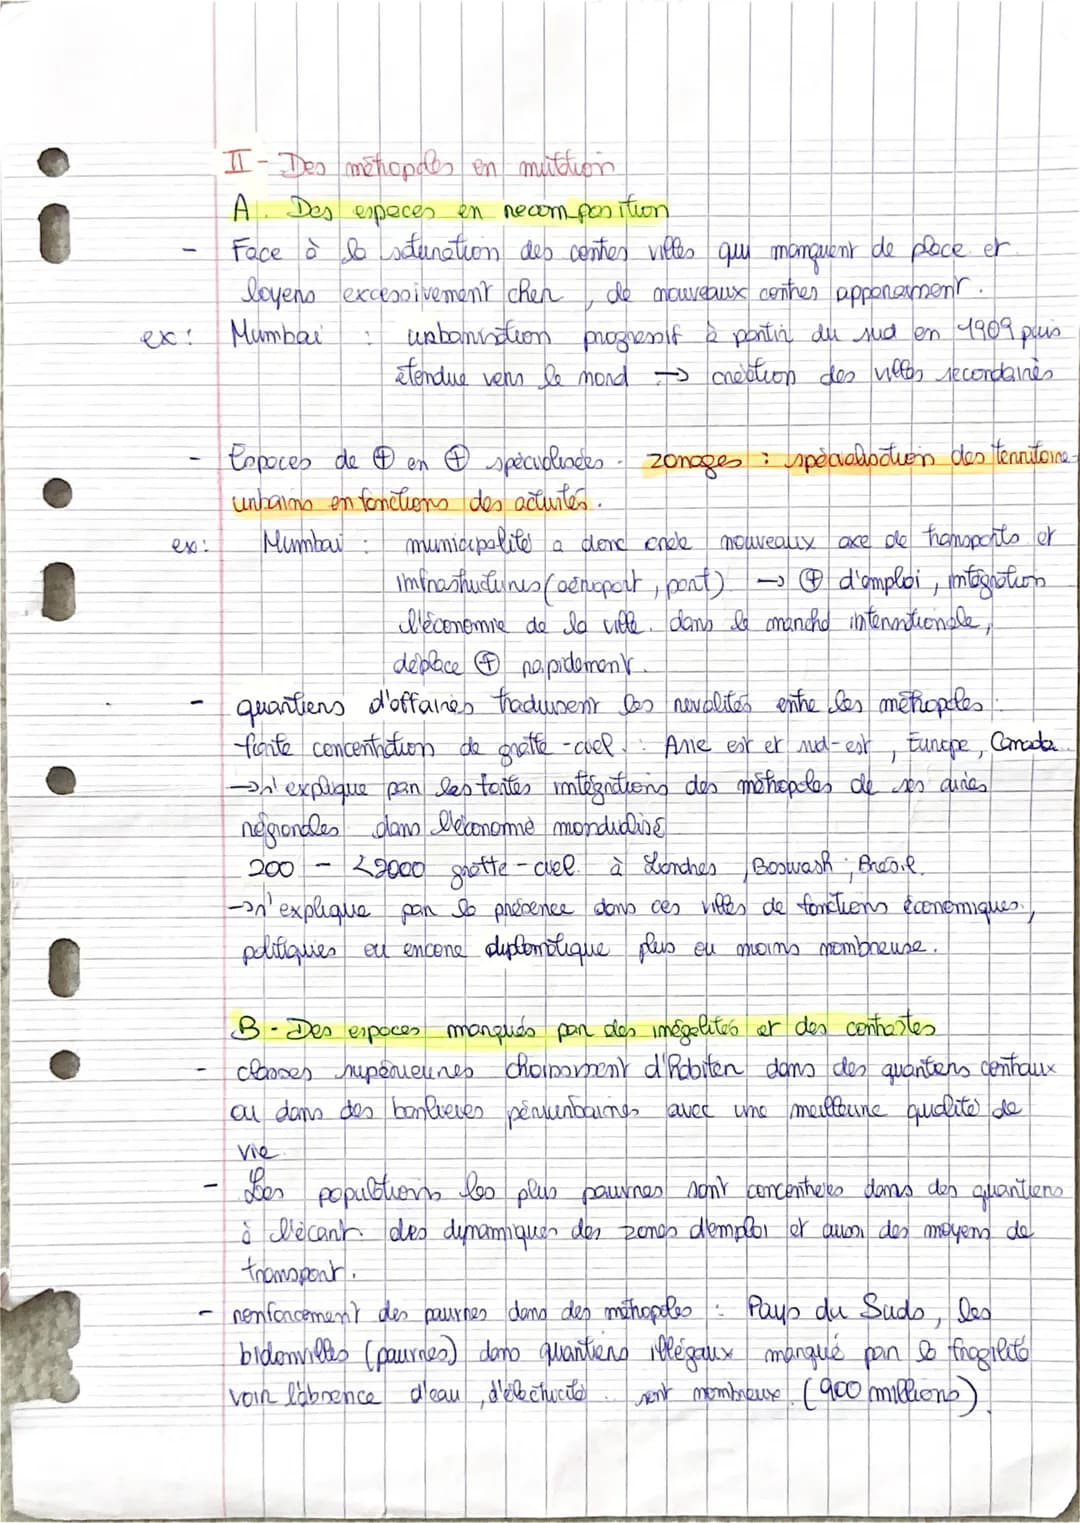 II - Des métropoles en mutation
A. Des espaces en recomposition
- Face à la saturation des centres villes qui manquent de place et
loyers excessivement cher, de nouveaux centres apparaissent.
ex: Mumbai : urbanisation progressif à partir du sud en 1909 puis
étendue vers le nord → création des villes secondaires
- Espaces de ⊕ en ⊕ spécialisées. zonages : spécialisation des territoire
urbains en fonctions des activités.
ex: Mumbai : municipalité a donc créé nouveaux axe de transports et
infrastructures (aéroport, port) → ⊕ d'emploi, intégration
l'économie de la ville dans le marché internationale,
déplace ⊕ rapidement.
- quartiers d'affaires traduisent les rivalités entre les métropoles :
-forte concentration de gratte-ciel : Asie est et sud-est, Europe, Canada
→ s'explique par les fortes intégrations des métropoles de ses aires
régionales dans l'économie mondialisé
200 - <2000 gratte-ciel à Londres, Boswash, Brésil.
→ s'explique par la présence dans ces villes de fonctions économiques,
politiques ou encore diplomatique plus ou moins nombreuse.
B - Des espaces marqués par des inégalités et des contrastes
- classes supérieures choisissent d'habiter dans des quartiers centraux
ou dans des banlieues périurbaines avec une meilleure qualité de
vie
- Les populations les plus pauvres sont concentrées dans des quartiers
à l'écart des dynamiques des zones d'emploi et aussi des moyens de
transport.
- renforcement des pauvres dans des métropoles : Pays du Suds, les
bidonvilles (pauvres) dans quartiers illégaux marqué par la fragilité
voir l'absence d'eau, d'électricité sont nombreux. (900 millions)